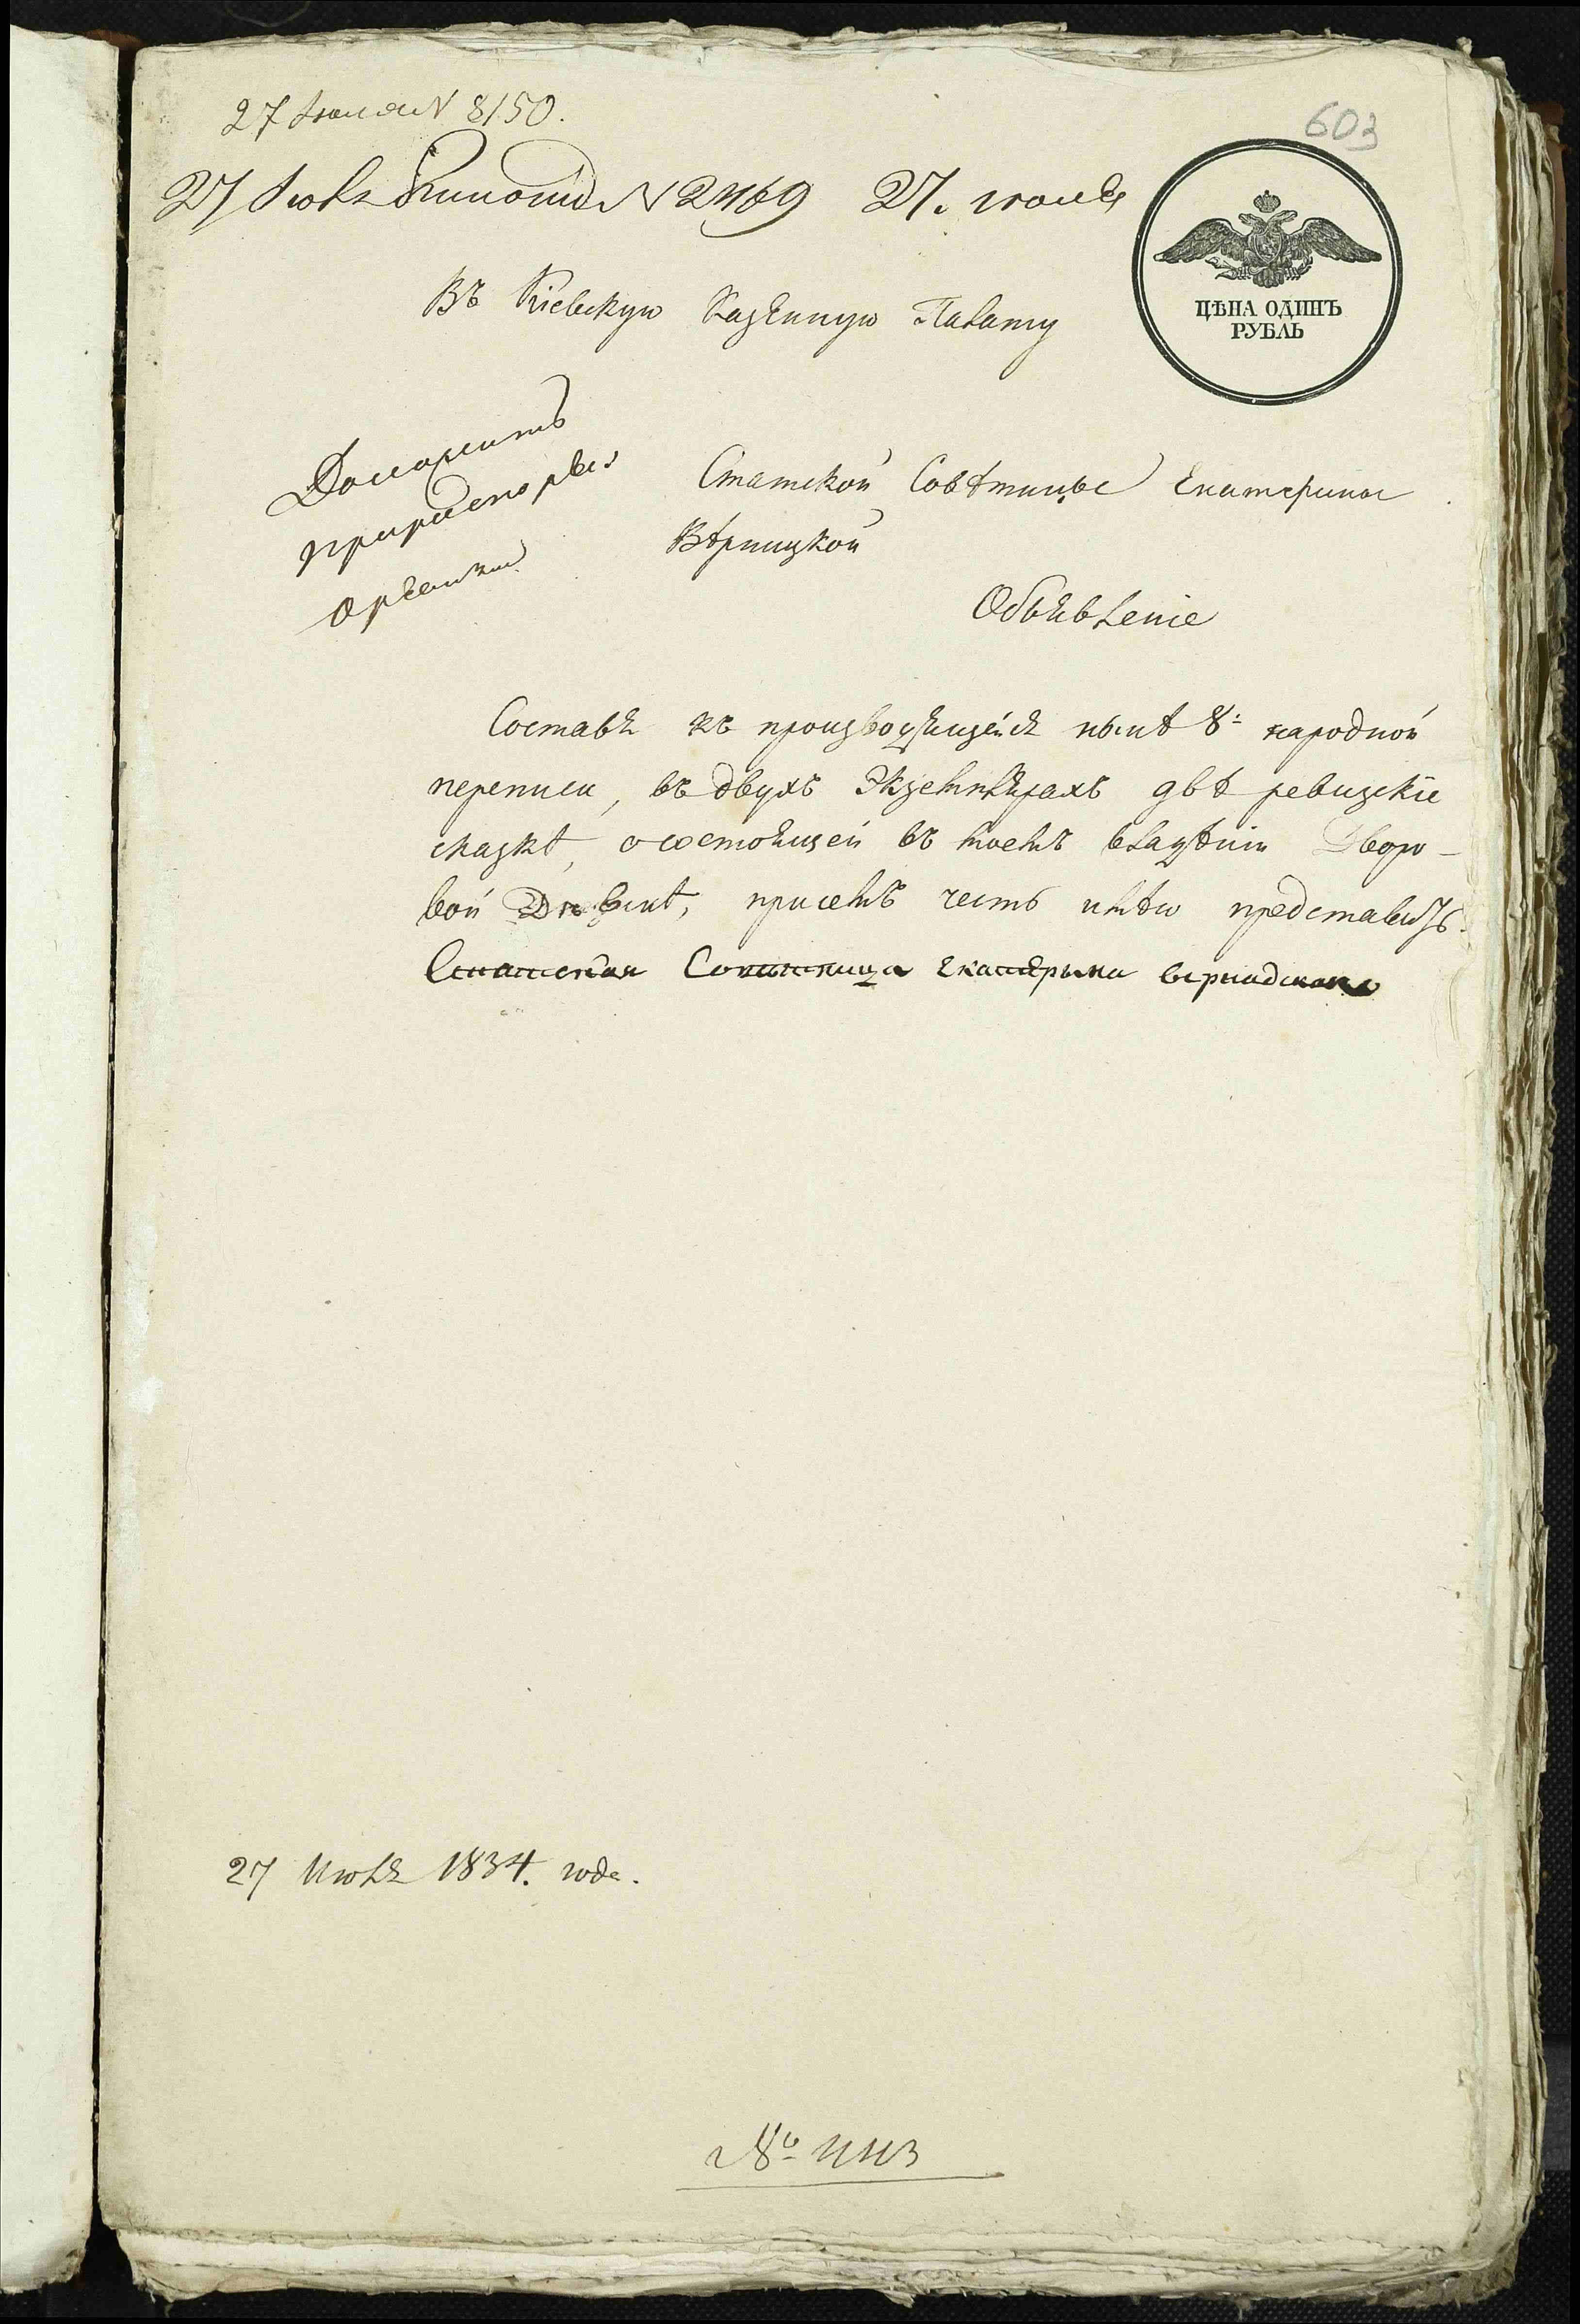 27 Июля N 8150.
603
27 Июля N 2469 27. июля
ЦѢНА ОДИНЪ
РУБЛЬ
Въ Кіевскую Казенную Палату
Доложить
Статской Совѣтницы Екатерины
Вѣрницкой
Объявленіе
Составя къ производящейся нынѣ 8й народной
переписи, въ двухъ Экземплярахъ двѣ ревизскіе
сказкѣ, о состоящей въ моемъ владѣніи Дворо-
вой присемъ честь имѣю представить.
Статская Советница Екатерына
27 Июля 1834. года.